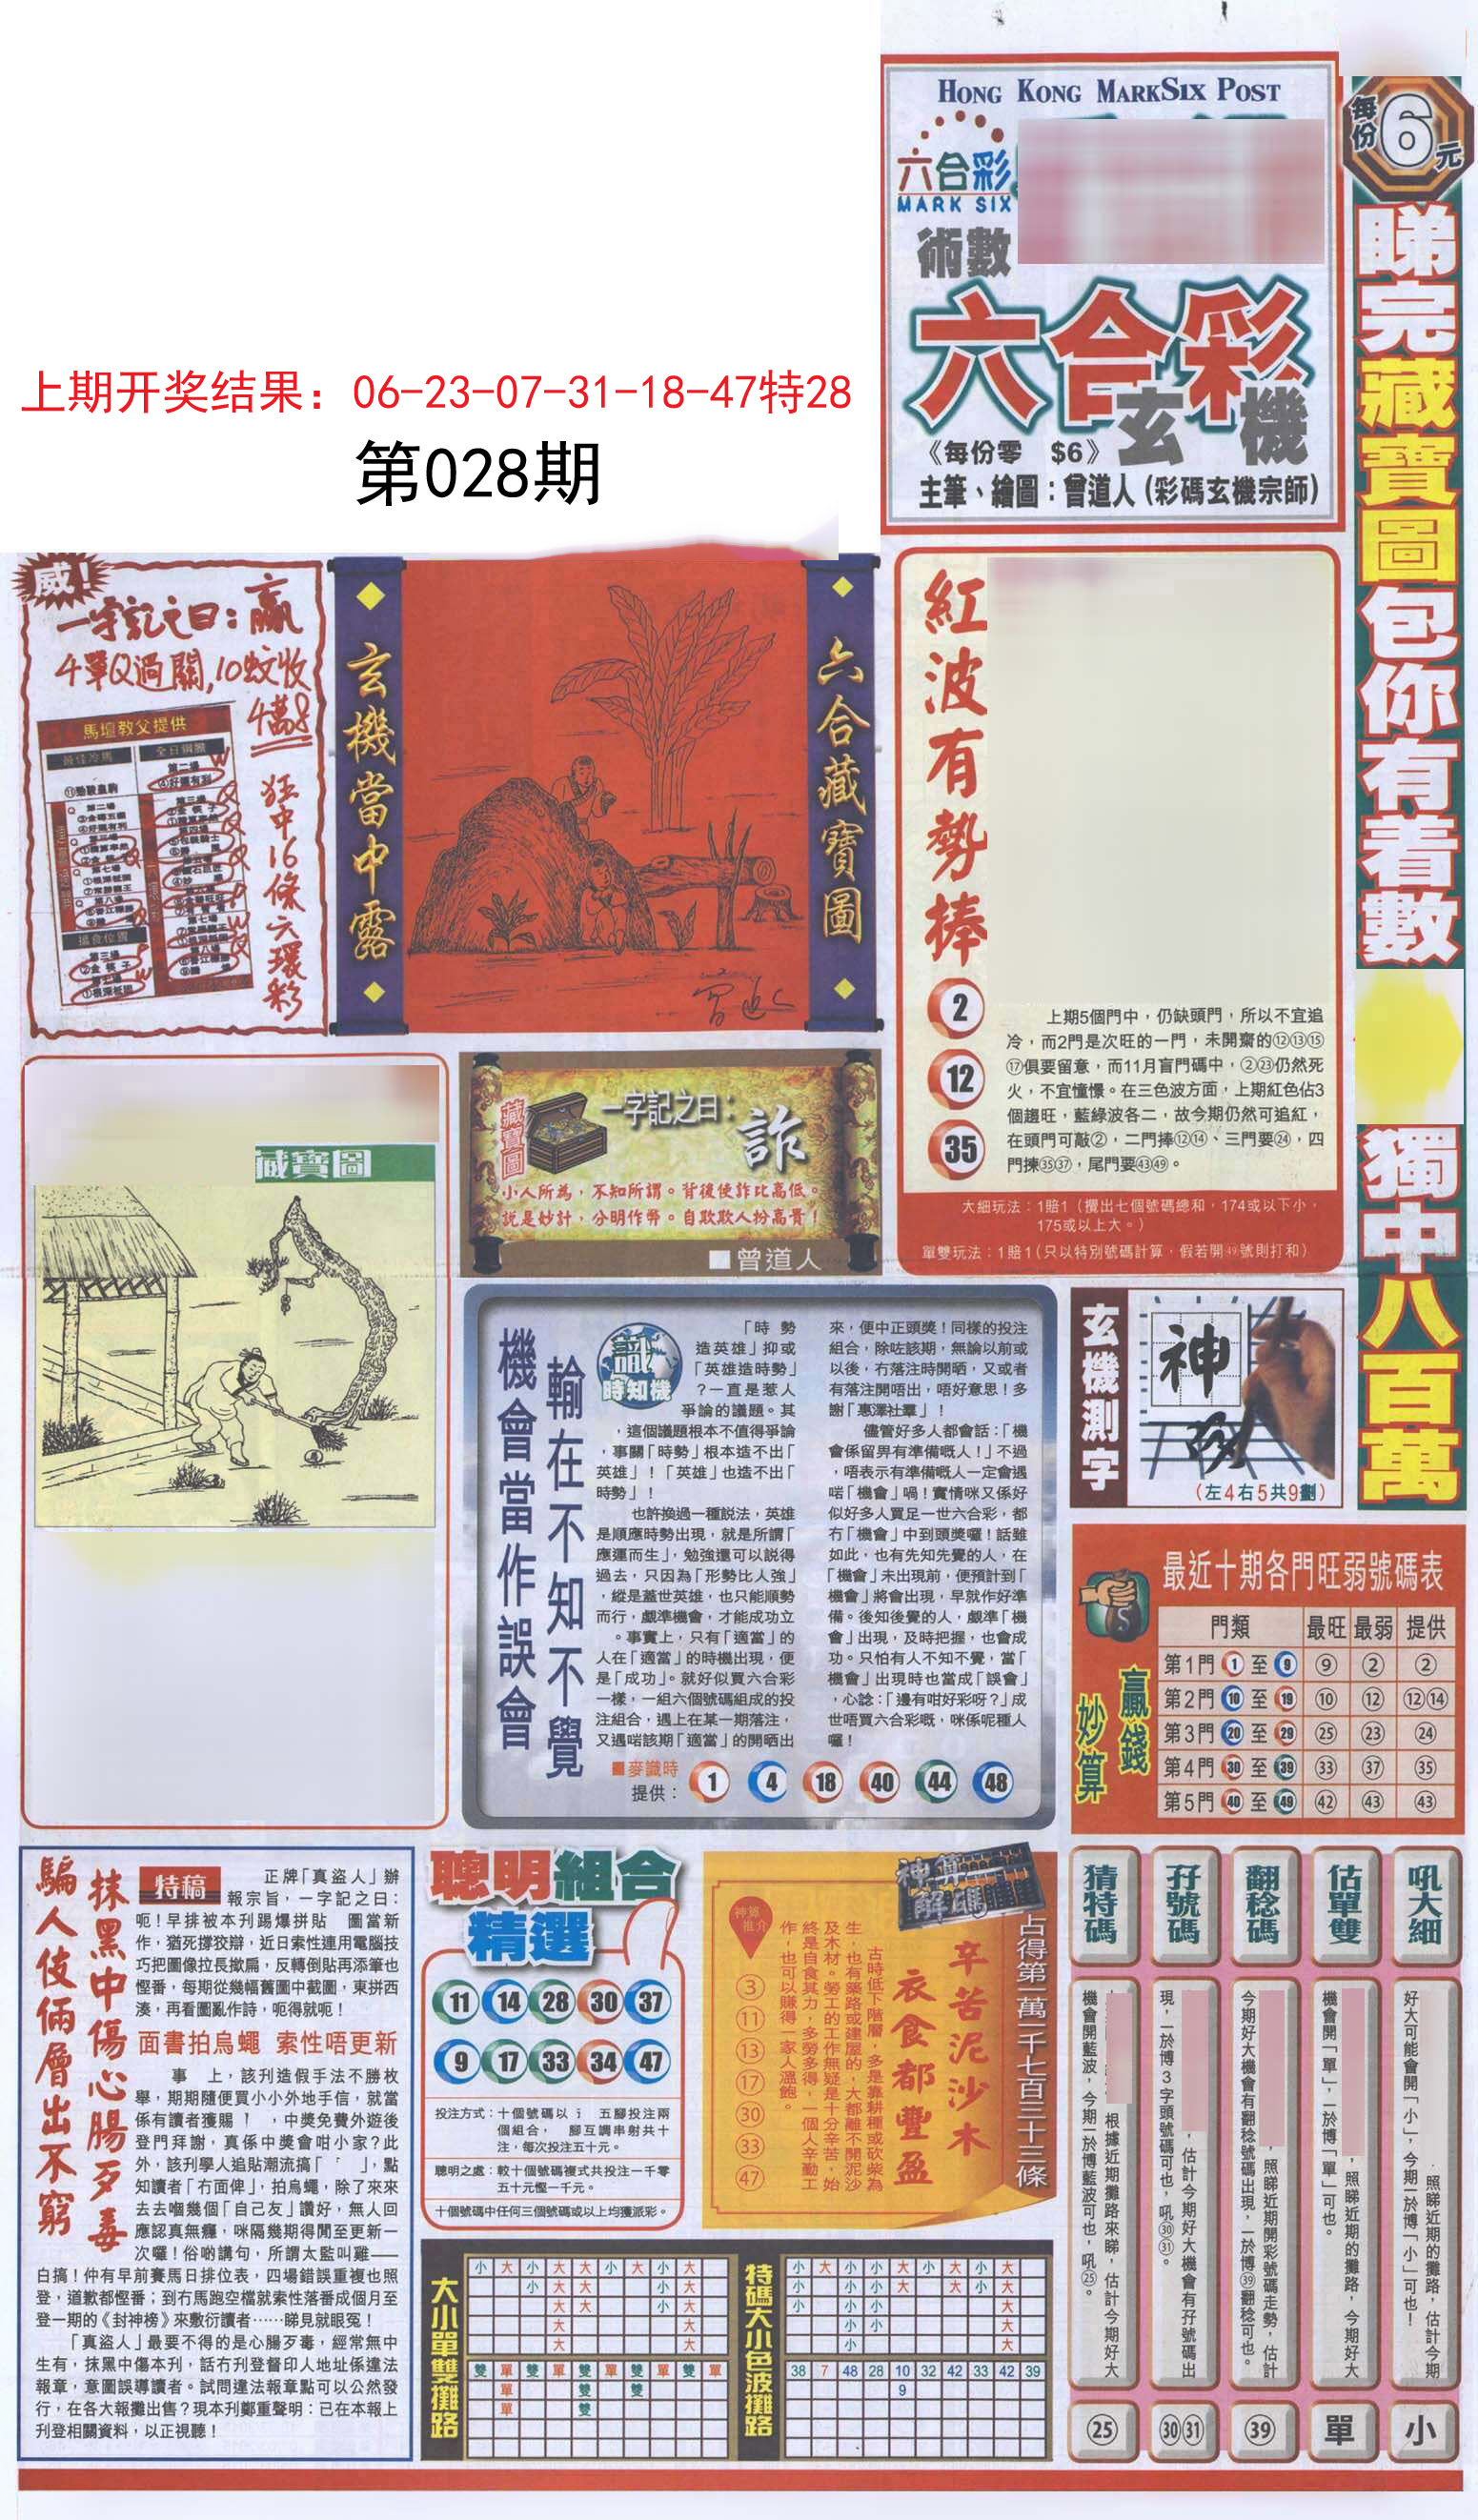 HONG KONG MARKSIX POST
六合彩
MARK SIX
術數
六合彩
玄機
《每份零 $6》
主筆、繪圖：曾道人（彩碼玄機宗師）
每份6元
睇完藏寶圖包你有着數
獨中八百萬
上期开奖结果：06-23-07-31-18-47特28
第028期
威！
一字記之曰：贏
4單Q過關，10蚊收
狂中16條六環彩
馬壇教父提供
最佳冷馬
玄機當中露
六合藏寶圖
紅波有勢捧
2
12
35
上期5個門中，仍缺頭門，所以不宜追
冷，而2門是次旺的一門，未開齋的⑫⑬⑮
⑰俱要留意，而11月盲門碼中，②㉓仍然死
火，不宜憧憬。在三色波方面，上期紅色佔3
個趨旺，藍綠波各二，故今期仍然可追紅，
在頭門可敲②，二門捧⑫⑭、三門要㉔，四
門揀㉟㊲，尾門要㊸㊾。
大細玩法：1賠1（攪出七個號碼總和，174或以下小，
175或以上大。）
單雙玩法：1賠1（只以特別號碼計算，假若開㊾號則打和）
藏寶圖
藏寶圖
一字記之曰：
詐
小人所為，不知所謂。背後使詐比高低。
說是妙計，分明作弊。自欺欺人扮高貴！
■曾道人
機會當作誤會
輸在不知不覺
識
時知機
「時勢
造英雄」抑或
「英雄造時勢」
？一直是惹人
爭論的議題。其
，這個議題根本不值得爭論
，事關「時勢」根本造不出「
英雄」！「英雄」也造不出「
時勢」！
也許換過一種説法，英雄
是順應時勢出現，就是所謂「
應運而生」，勉強還可以説得
過去，只因為「形勢比人強」
，縱是蓋世英雄，也只能順勢
而行，覷準機會，才能成功立
。事實上，只有「適當」的
人在「適當」的時機出現，便
是「成功」。就好似買六合彩
一樣，一組六個號碼組成的投
注組合，遇上在某一期落注，
又遇啱該期「適當」的開晒出
來，便中正頭獎！同樣的投注
組合，除咗該期，無論以前或
以後，冇落注時開晒，又或者
有落注開唔出，唔好意思！多
謝「惠澤社羣」！
儘管好多人都會話：「機
會係留畀有準備嘅人！」不過
，唔表示有準備嘅人一定會遇
啱「機會」喎！實情咪又係好
似好多人買足一世六合彩，都
冇「機會」中到頭獎囉！話雖
如此，也有先知先覺的人，在
「機會」未出現前，便預計到「
機會」將會出現，早就作好準
備。後知後覺的人，覷準「機
會」出現，及時把握，也會成
功。只怕有人不知不覺，當「
機會」出現時也當成「誤會」
，心諗：「邊有咁好彩呀？」成
世唔買六合彩嘅，咪係呢種人
囉！
■麥識時
提供：
1 4 18 40 44 48
玄機測字
神
（左4右5共9劃）
最近十期各門旺弱號碼表
贏錢
妙算
門類 最旺 最弱 提供
第1門 1 至 9 ⑨ ② ②
第2門 10 至 19 ⑩ ⑫ ⑫⑭
第3門 20 至 29 ㉕ ㉓ ㉔
第4門 30 至 39 ㉝ ㊲ ㉟
第5門 40 至 49 ㊷ ㊸ ㊸
騙人伎倆層出不窮
抹黑中傷心腸歹毒
特稿
正牌「真盜人」辦
報宗旨，一字記之曰：
呃！早排被本刊踢爆拼貼 圖當新
作，猶死撐狡辯，近日索性連用電腦技
巧把圖像拉長撳扁，反轉倒貼再添筆也
慳番，每期從幾幅舊圖中截圖，東拼西
湊，再看圖亂作詩，呃得就呃！
面書拍烏蠅 索性唔更新
事 上，該刊造假手法不勝枚
舉，期期隨便買小小外地手信，就當
係有讀者獲賜 ，中獎免費外遊後
登門拜謝，真係中獎會咁小家？此
外，該刊學人追貼潮流搞「 」，點
知讀者「冇面俾」，拍烏蠅，除了來來
去去嗰幾個「自己友」讚好，無人回
應認真無癮，咪隔幾期得閒至更新一
次囉！俗啲講句，所謂太監叫雞——
白搞！仲有早前賽馬日排位表，四場錯誤重複也照
登，道歉都慳番；到冇馬跑空檔就索性落番成個月至
登一期的《封神榜》來敷衍讀者……睇見就眼冤！
「真盜人」最要不得的是心腸歹毒，經常無中
生有，抹黑中傷本刊，話冇刊登督印人地址係違法
報章，意圖誤導讀者。試問違法報章點可以公然發
行，在各大報攤出售？現本刊鄭重聲明：已在本報上
刊登相關資料，以正視聽！
聰明組合
精選
11 14 28 30 37
9 17 33 34 47
投注方式：十個號碼以 五腳投注兩
個組合， 腳互調串射共十
注，每次投注五十元。
聰明之處：較十個號碼複式共投注一千零
五十元慳一千元。
十個號碼中任何三個號碼或以上均獲派彩。
神算
解碼
占得第二萬二千七百三十三條
辛苦泥沙木
衣食都豐盈
古時低下階層，多是靠耕種或砍柴為
生，也有築路或建屋的，大都離不開泥沙
及木材。勞工的工作無疑是十分辛苦，始
終是自食其力，多勞多得，一個人辛勤工
作，也可以賺得一家人溫飽。
神算推介
③ ⑪ ⑬ ⑰ ㉚ ㉝ ㊼
大小單雙攤路
小 大 小 大 大 小 大 小 大
小 大 大 小 大
大 大 小 大
大 大
大 大
雙 單 雙 單 雙 單 雙 單 雙 單
單 雙 雙
單 雙
特碼大小色波攤路
小 大 小 小 大 小 大 小 大
小 小 小 大 大 小 大
小 小 小 大
小 小 大
小 大
38 7 48 28 10 32 42 33 42 39
9
猜特碼
根據近期攤路來睇，估計今期好大
機會開藍波，今期一於博藍波可也，吼㉕。
㉕
孖號碼
，估計今期好大機會有孖號碼出
現，一於博3字頭號碼可也，吼㉚㉛。
㉚㉛
翻稔碼
，照睇近期開彩號碼走勢，估計
今期好大機會有翻稔號碼出現，一於博㊴翻稔可也。
㊴
估單雙
，照睇近期的攤路，今期好大
機會開「單」，一於博「單」可也。
單
吼大細
照睇近期的攤路，估計今期
好大可能會開「小」，今期一於博「小」可也！
小